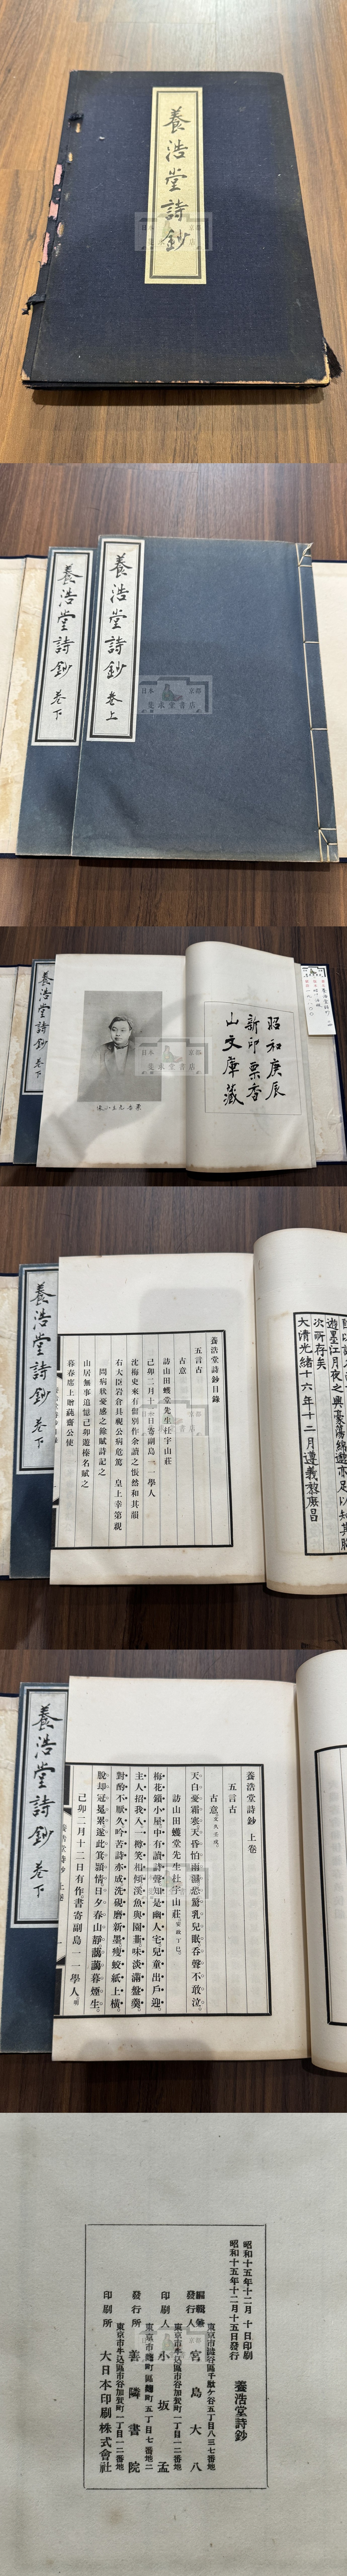 養浩堂詩鈔
養浩堂詩鈔 卷上
養浩堂詩鈔 卷下
日本 京都
斐承堂書店
昭和庚辰
新印栗香
山文庫藏
養浩堂詩鈔 卷下
大清光緒十六年十二月遵義黎庶昌
次所存矣
養浩堂詩鈔目錄
五言古
古意
訪山田蠖堂先生杜宇山莊
己卯二月十二日寄副島一一學人
沈梅史來有留別作余讀之悵然和其韻
右大臣岩倉具視公病危篤 皇上幸第親
問病狀憂感之餘賦詩記之
山居無事追憶己卯遊榛名賦之
暮春席上贈蒓齋公使
養浩堂詩鈔 卷下
養浩堂詩鈔 上卷
五言古
古意
天白憂霜寒天昏怕雨濕恐驚乳兒眠吞聲不敢泣
訪山田蠖堂先生杜宇山莊
梅花鎖小屋中有讀詩聲知是幽人宅兒童出戶迎
主人招我入一樽笑相傾溪魚與園韭味淡滿盤羹
對酌不厭久吟苦詩亦成洗硯磨新墨瘦蛟紙上橫
脫却冠冕累遂此箕顥情日夕春山靜藹藹暮煙生
己卯二月十二日有作書寄副島一一學人
養浩堂詩鈔 卷下
昭和十五年十二月 十日印刷
昭和十五年十二月十五日發行
養浩堂詩鈔
東京市澁谷區千駄ケ谷五丁目八三七番地
編輯兼發行人 宮島大八
東京市牛込區市谷加賀町一丁目一二番地
印刷人 小坂孟
東京市麴町區麴町五丁目七番地二
發行所 善隣書院
東京市牛込區市谷加賀町一丁目一二番地
印刷所 大日本印刷株式會社